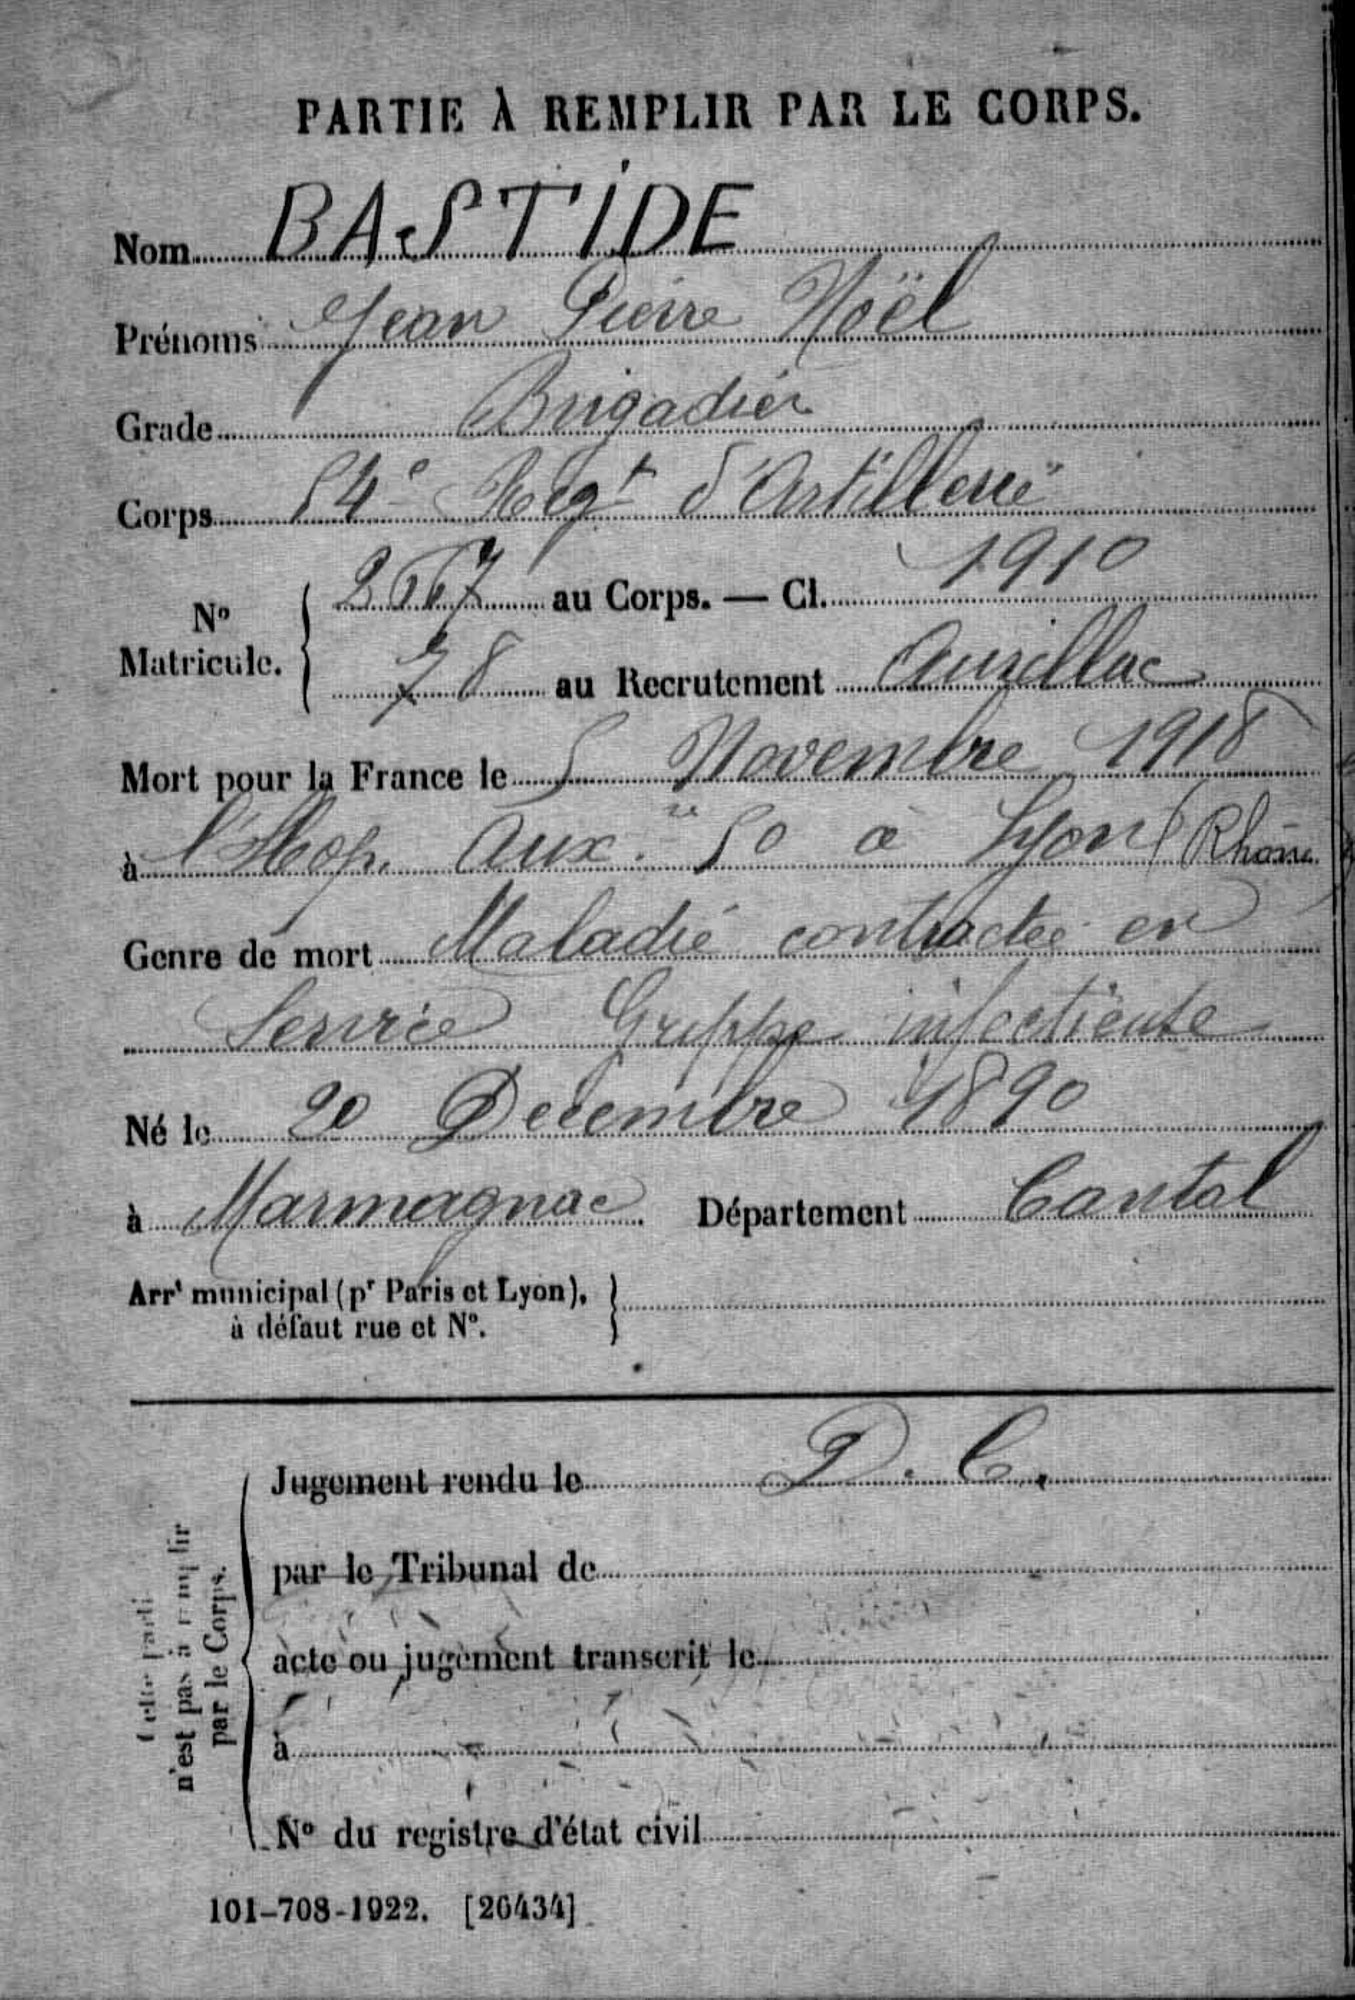 PARTIE À REMPLIR PAR LE CORPS.
Nom BASTIDE
Prénoms Jean Pierre Noël
Grade Brigadier
Corps 54e Regt d'Artillerie
No Matricule. { au Corps. — Cl. 1910
78 au Recrutement Aurillac
Mort pour la France le 5 Novembre 1918
à l'Hop. Aux.re 50 à Lyon (Rhône)
Genre de mort Maladie contractée en
Service Grippe infectieuse
Né le 20 Decembre 1890
à Marmagnac. Département Cantal
Arrt municipal (pr Paris et Lyon), }
à défaut rue et No.
Cette parti n'est pas à remplir par le Corps.
Jugement rendu le D. C.
par le Tribunal de
acte ou jugement transcrit le
à
No du registre d'état civil
101-708-1922. [26434]